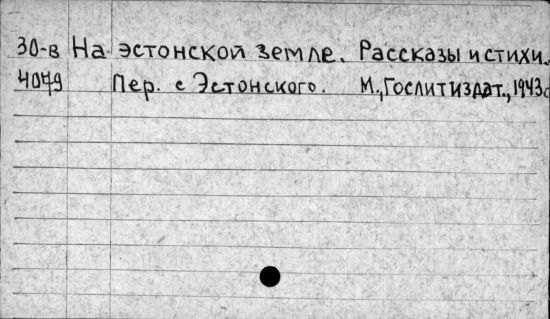 30-в На эстонской земле. Рассказы и стихи.
4079 Пер. с Эстонского. М., Гослитиздат., 1943.